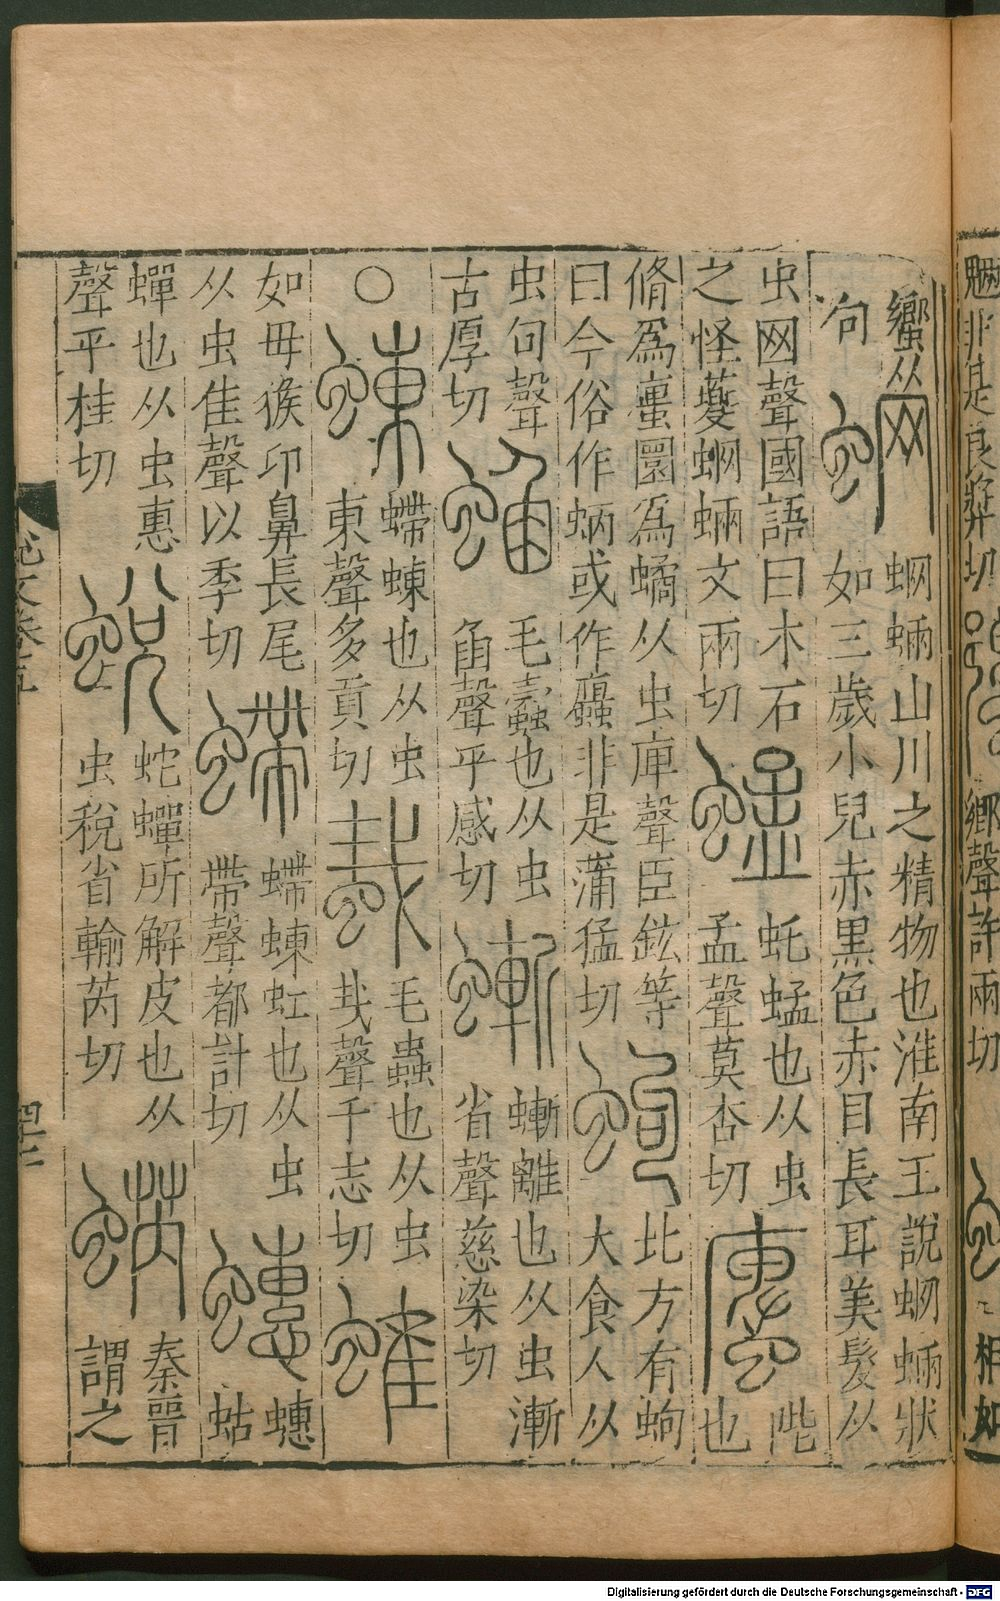 蠁从
向
蛧
蛧蜽山川之精物也淮南王說蛧蜽狀
如三歲小兒赤黑色赤目長耳美髮从
虫网聲國語曰木石
之怪夔蛧蜽文兩切
蜢
虴蜢也从虫
孟聲莫杏切
蠯
階也
脩爲蠯圜爲蠇从虫庳聲臣鉉等
曰今俗作蛃或作䗪非是蒲猛切
蚼
北方有蚼
大食人从
虫句聲
古厚切
蜭
毛蠹也从虫
臽聲乎感切
螹
螹離也从虫漸
省聲慈染切
○
蝀
螮蝀也从虫
東聲多貢切
蛓
毛蟲也从虫
𢦏聲千志切
蜼
如母猴卬鼻長尾
从虫隹聲以季切
螮
螮蝀虹也从虫
帶聲都計切
蟪
蟪蛄
蟬也从虫惠
聲乎桂切
蛻
蛇蟬所解皮也从
虫稅省輸芮切
蜹
秦晉
謂之
說文卷
四十
聲許兩切
相如
Digitalisierung gefördert durch die Deutsche Forschungsgemeinschaft - DFG